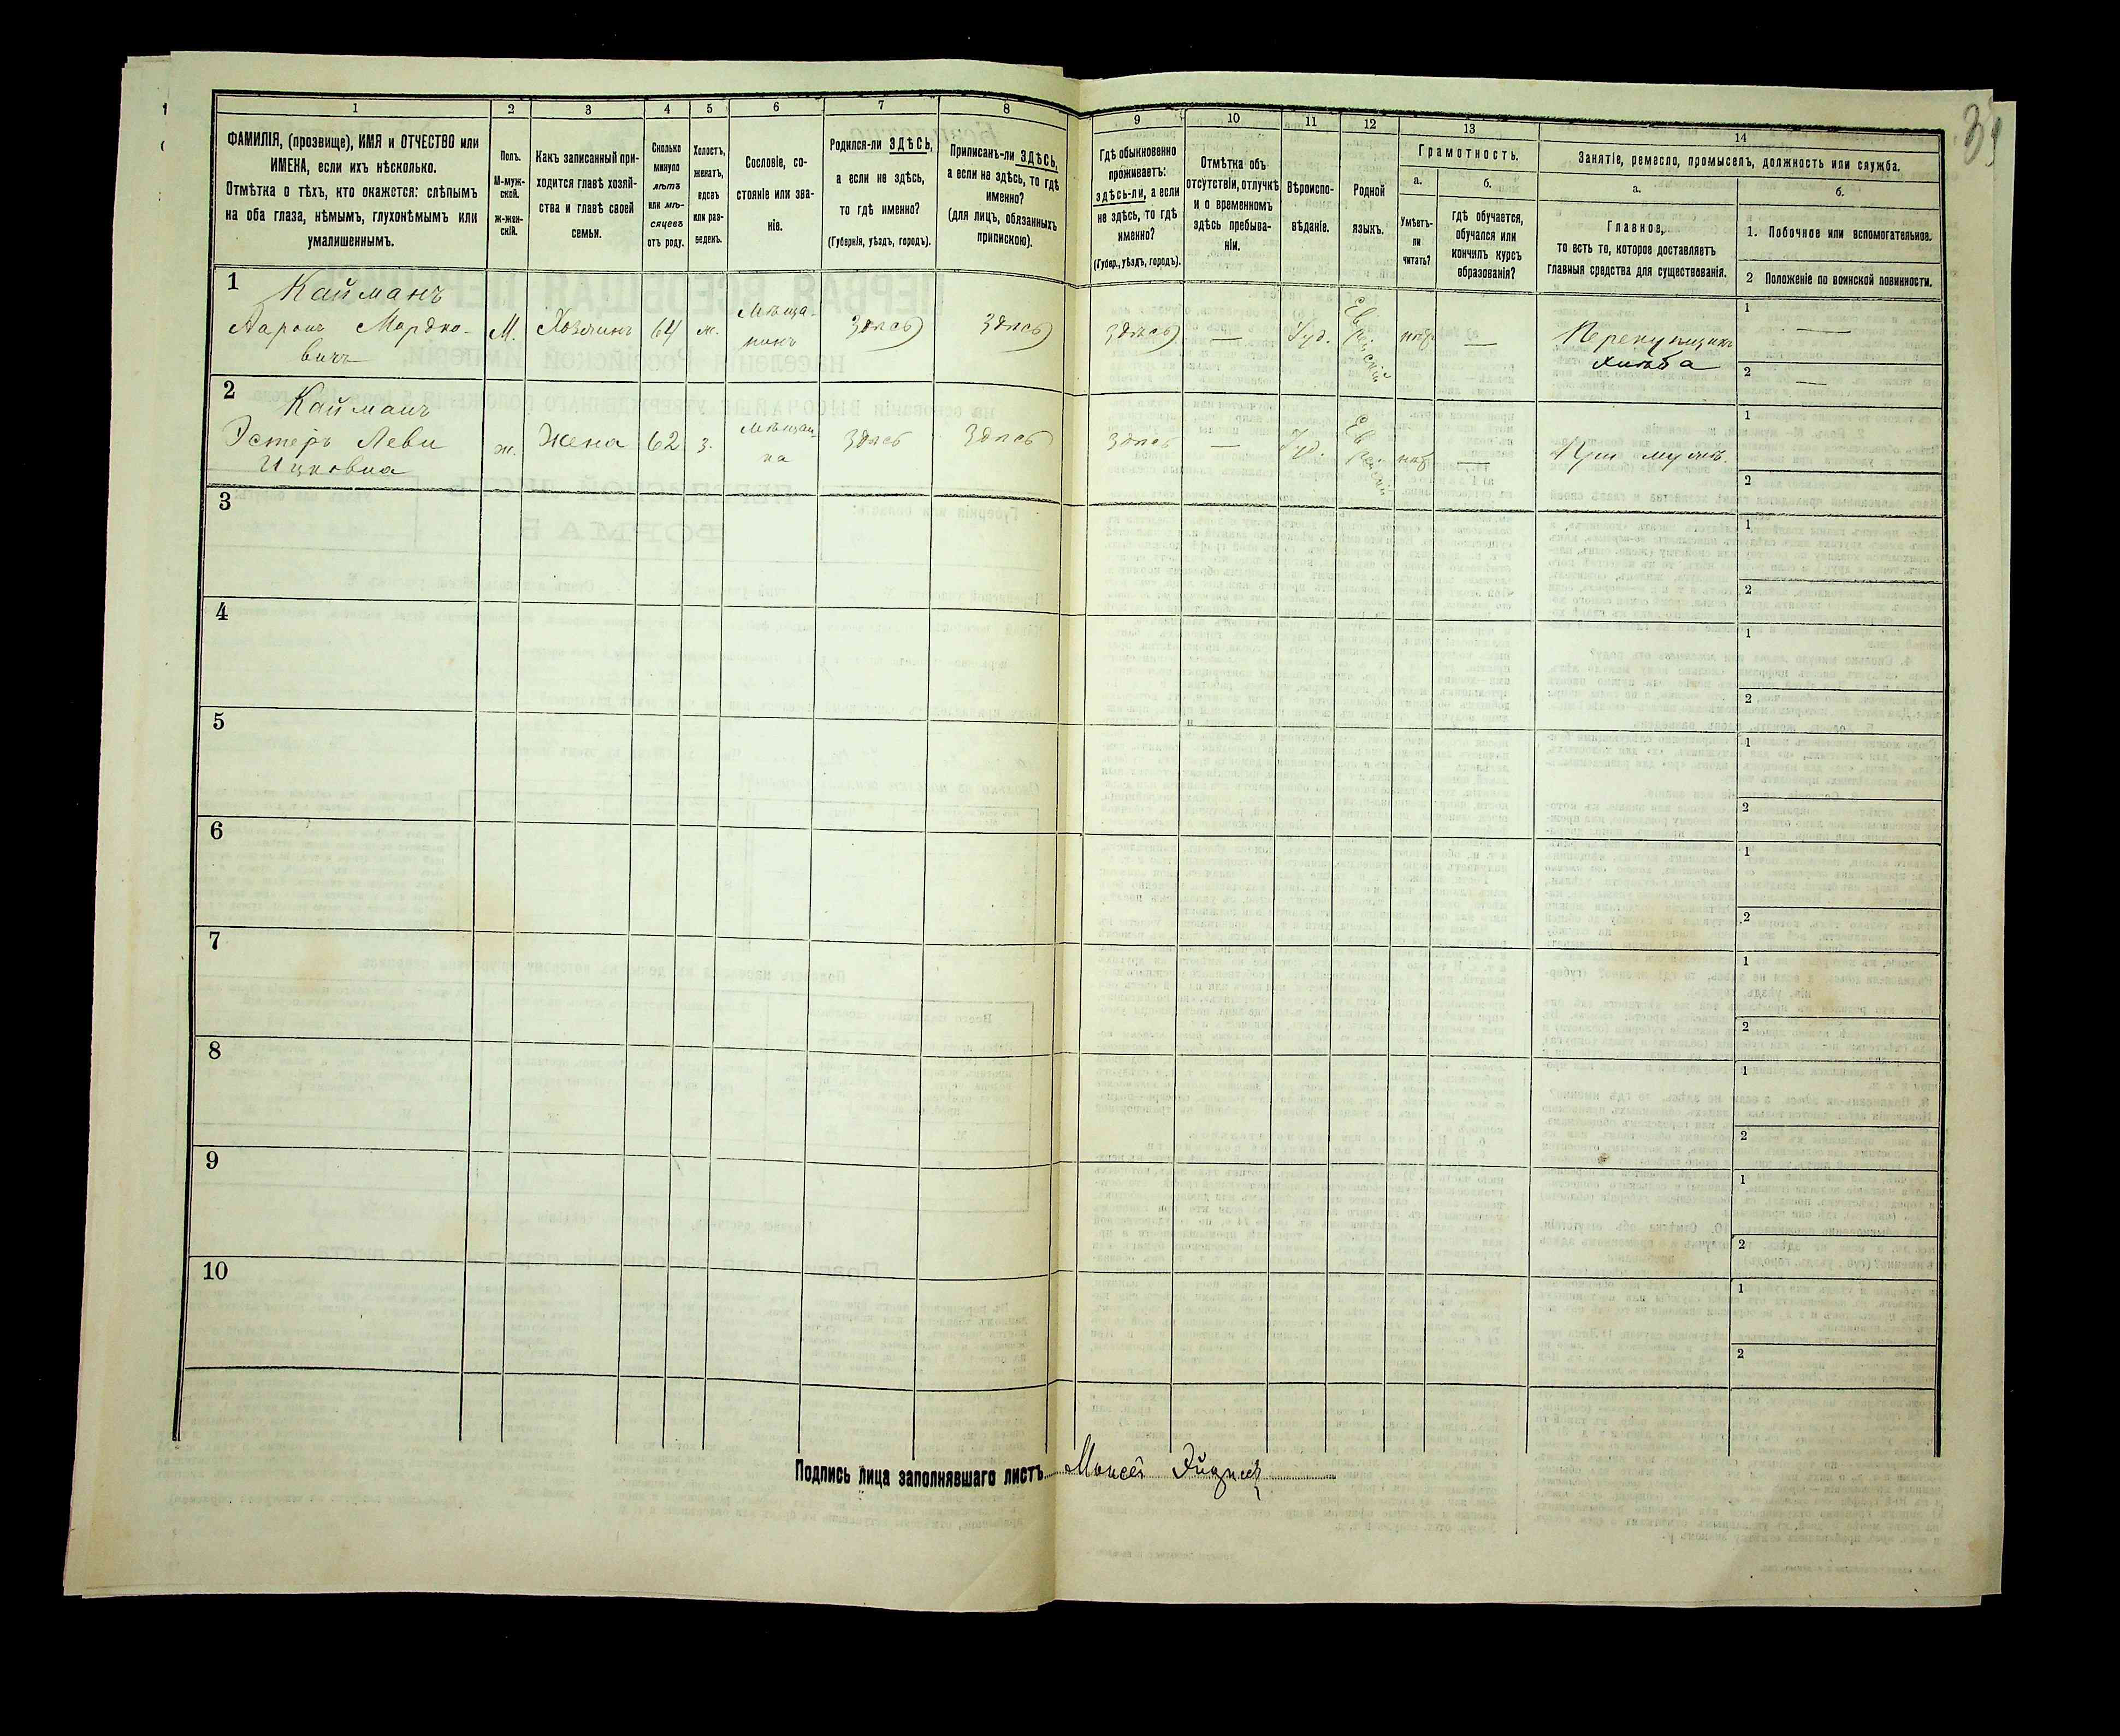 35
1
2
3
4
5
6
7
8
9
10
11
12
13
14
ФАМИЛІЯ, (прозвище), ИМЯ и ОТЧЕСТВО или
ИМЕНА, если ихъ нѣсколько.
Отмѣтка о тѣхъ, кто окажется: слѣпымъ
на оба глаза, нѣмымъ, глухонѣмымъ или
умалишеннымъ.
Полъ.
М-муж-
ской.
ж-жен-
скій.
Какъ записанный при-
ходится главѣ хозяй-
ства и главѣ своей
семьи.
Сколько
минуло
лѣтъ
или мѣ-
сяцевъ
отъ роду.
Холостъ,
женатъ,
вдовъ
или раз-
веденъ.
Сословіе, со-
стояніе или зва-
ніе.
Родился-ли ЗДѢСЬ,
а если не здѣсь,
то гдѣ именно?
(Губернія, уѣздъ, городъ).
Приписанъ-ли ЗДѢСЬ,
а если не здѣсь, то гдѣ
именно?
(для лицъ, обязанныхъ
припискою).
Гдѣ обыкновенно
проживаетъ:
здѣсь-ли, а если
не здѣсь, то гдѣ
именно?
(Губер., уѣздъ, городъ).
Отмѣтка объ
отсутствіи, отлучкѣ
и о временномъ
здѣсь пребыва-
ніи.
Вѣроиспо-
вѣданіе.
Родной
языкъ.
Грамотность.
а.
б.
Умѣетъ-
ли
читать?
гдѣ обучается,
обучался или
кончилъ курсъ
образованія?
Занятіе, ремесло, промыселъ, должность или служба.
а.
б.
Главное,
то есть то, которое доставляетъ
главныя средства для существованія.
1. Побочное или вспомогательное.
2 Положеніе по воинской повинности.
1
Кайманъ
Ааронъ Мордко-
вичъ
М.
Хозяинъ
64
ж.
Мѣща-
нинъ
Здѣсь
Здѣсь
Здѣсь
—
Іуд.
Ев
рейскій
нѣтъ
—
Перекупщикъ
хлѣба
1
—
2
—
2
Кайманъ
Эстеръ Леви
Ицковна
ж.
Жена
62
з.
Мѣщан-
ка
Здѣсь
Здѣсь
Здѣсь
—
Іуд.
Ев
рейскій
нѣтъ
—
При мужѣ.
1
2
3
1
2
4
1
2
5
1
2
6
1
2
7
1
2
8
1
2
9
1
2
10
1
2
Подпись лица заполнявшаго листъ Моисей